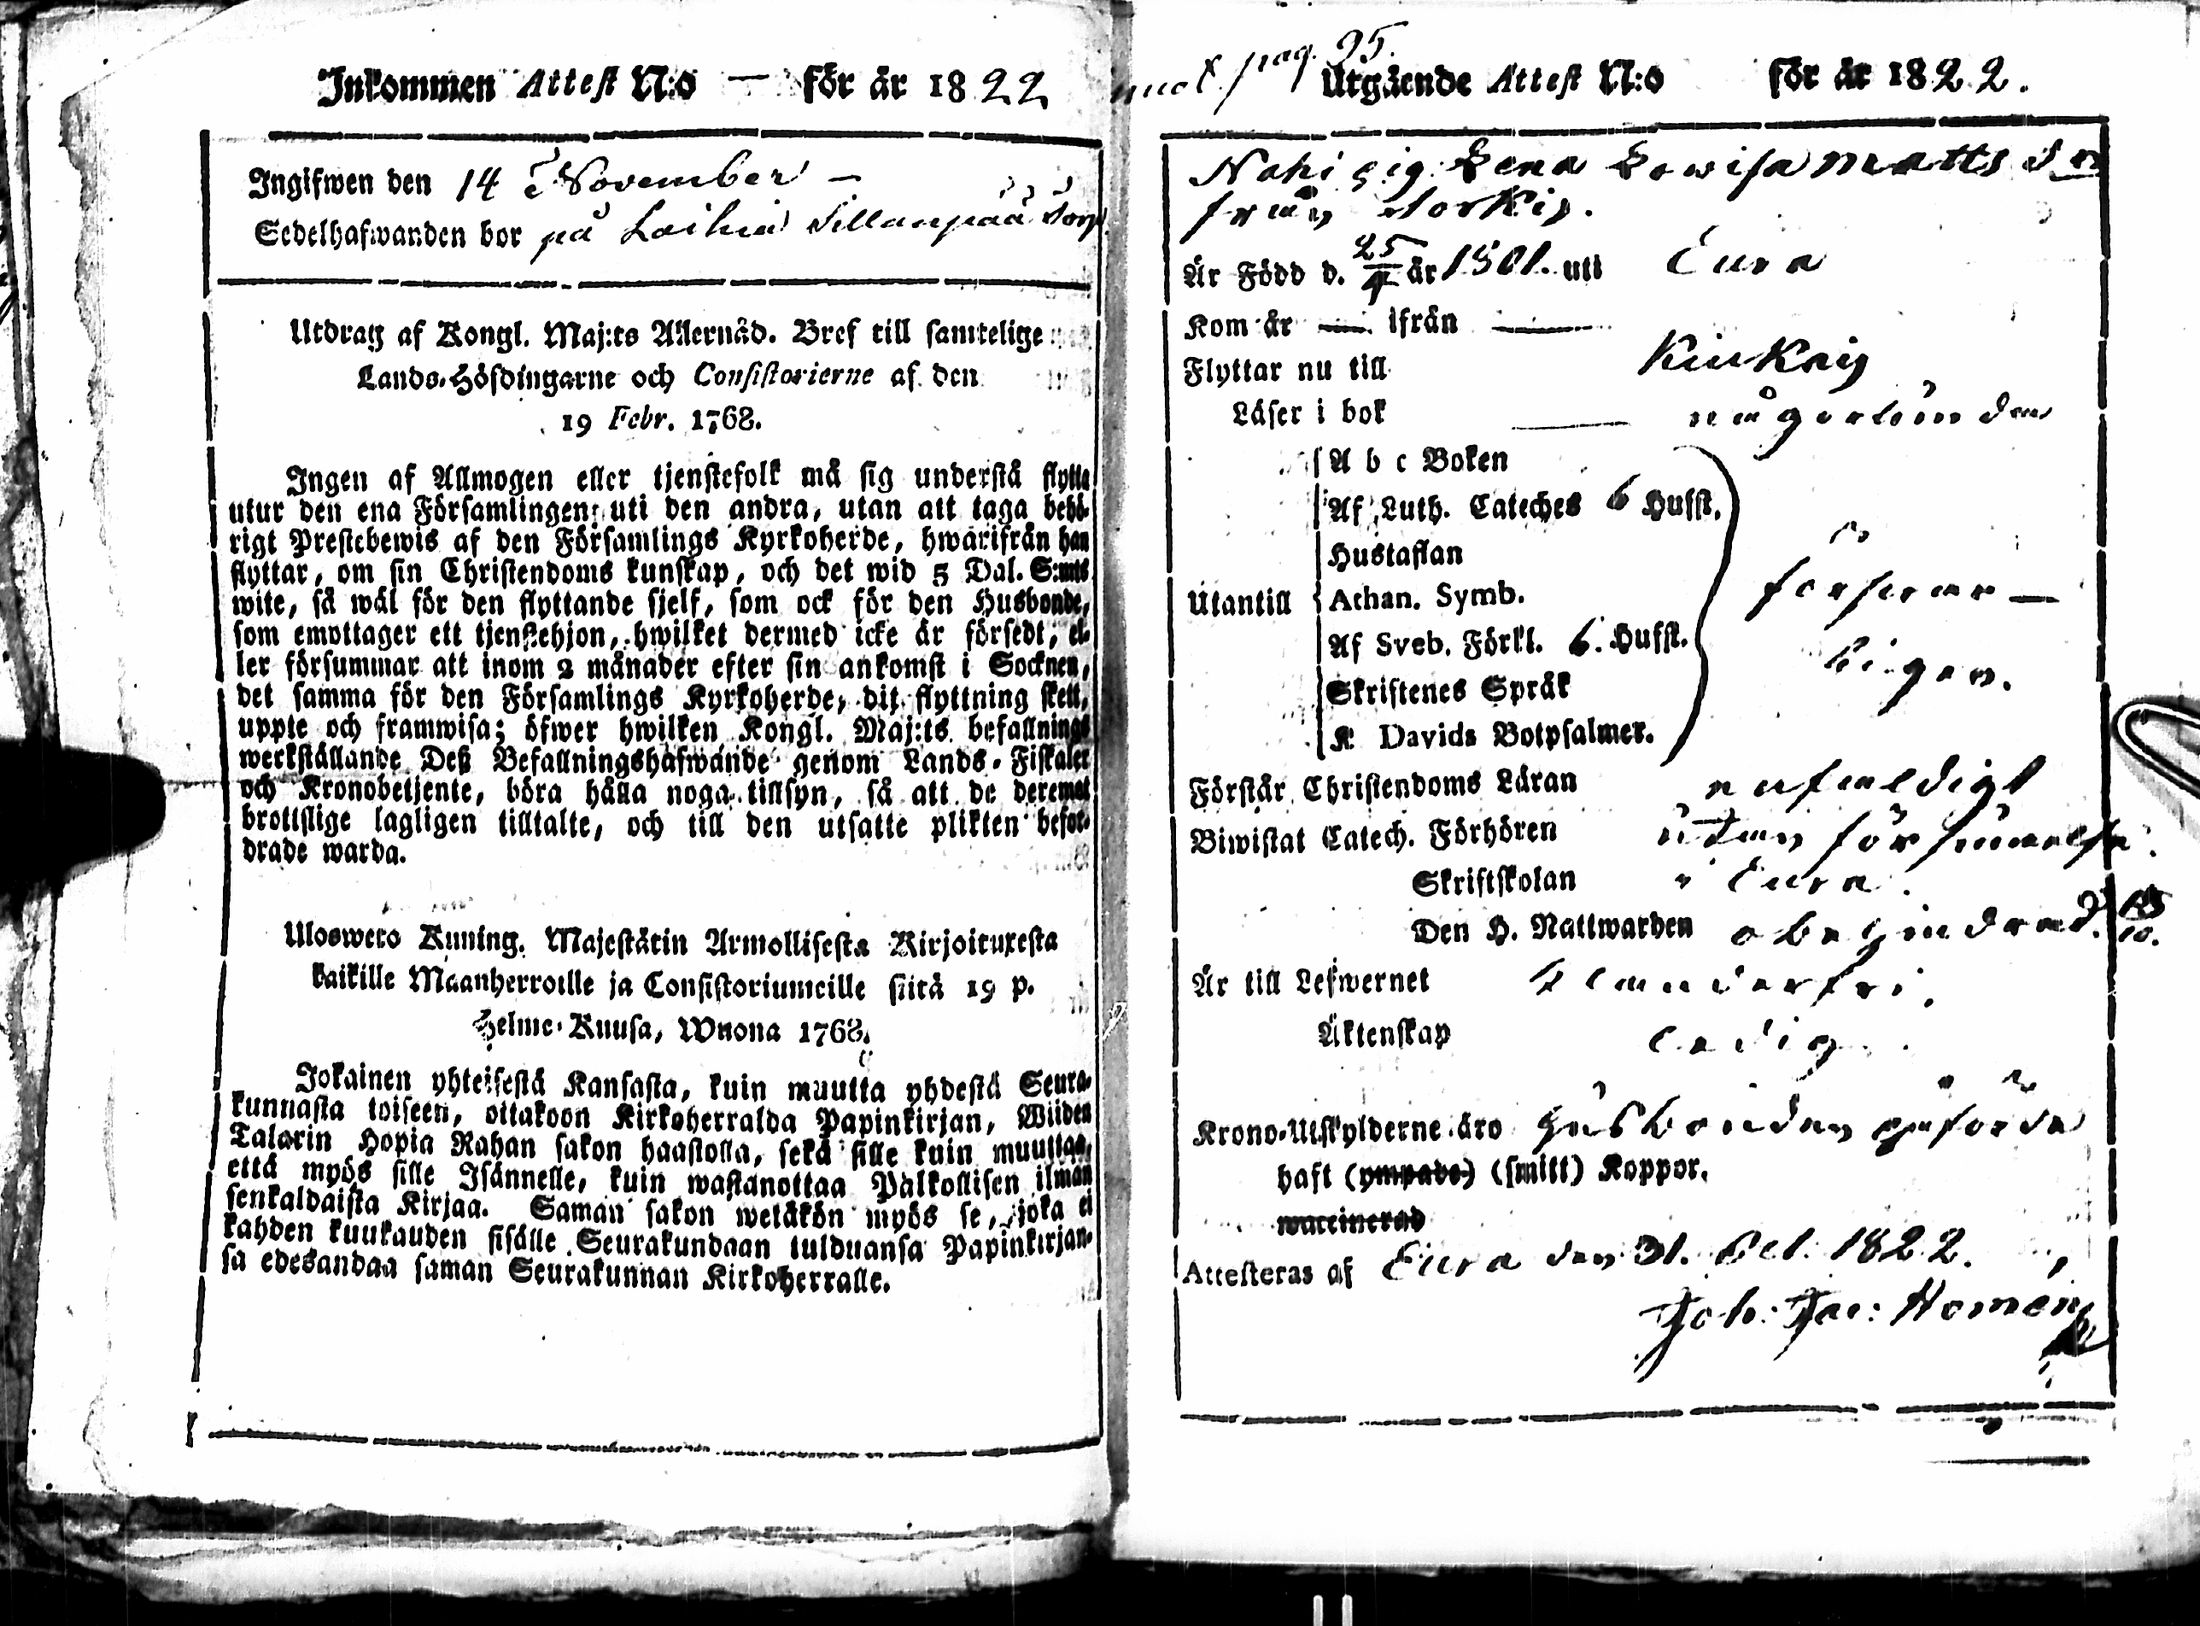 Inkommen Attest N:o — för år 1822
Ingifwen den 14 November —
Sedelhafwanden bor på Loihia Sillanpää Torp
Utdrag af Kongl. Maj:ts Allernåd. Bref till samtelige
Lands-Höfdingarne och Consistorierne af den
19 Febr. 1768.
Ingen af Allmogen eller tjenstefolk må sig understå flytta
utur den ena Församlingen uti den andra, utan att taga behö-
rigt Prestebewis af den Församlings Kyrkoherde, hwarifrån han
flyttar, om sin Christendoms kunskap, och det wid 5 Dal. S:mts
wite, så wäl för den flyttande sjelf, som ock för den Husbonde,
som emottager ett tjenstehjon, hwilket dermed icke är försedt, el-
ler försummar att inom 2 månader efter sin ankomst i Socknen,
det samma för den Församlings Kyrkoherde, dit flyttning skett,
uppte och framwisa; öfwer hwilken Kongl. Maj:ts befallnings
werkställande Deß Befallningshafwande genom Lands-Fiskaler
och Kronobetjente, böra hålla noga tillsyn, så att de deremot
brottslige lagligen tilltalte, och till den utsatte plikten befor-
drade warda.
Ulosweto Kuning. Majestätin Armollisesta Kirjoituxesta
kaikille Maanherroille ja Consistoriumeille siitä 19 p.
Helme-Kuusa, Wuona 1768.
Jokainen yhteisestä Kansasta, kuin muutta yhdestä Seura-
kunnasta toiseen, ottakoon Kirkoherralda Papinkirjan, Wiiden
Talarin Hopia Rahan sakon haastolla, sekä sille kuin muuttaa,
että myös sille Isännelle, kuin wastanottaa Palkollisen ilman
senkaldaista Kirjaa. Saman sakon wetäkön myös se, joka ei
kahden kuukauden sisälle Seurakundaan tulduansa Papinkirjan-
sa edesandaa saman Seurakunnan Kirkoherralle.
pag. 95.
Utgående Attest N:o för år 1822.
Lena Lowisa Matts dr
från Sorkis.
Är Född d. 25/4 år 1801. uti Eura
Kom år — ifrån —
Flyttar nu till Kiukais
Läser i bok — någorlunda
A b c Boken
Af Luth. Cateches 6 Hufst.
Hustaflan
Utantill Athan. Symb. försvar—
Af Sveb. Förkl. 6. Hufst.
ligen.
Skriftenes Språk
K. Davids Botpsalmer.
Förstår Christendoms Läran enfaldigt
Biwistat Catech. Förhören utan försummelse.
Skriftskolan i Eura.
Den H. Nattwarden obehindrad.
Är till Lefwernet klanderfri.
Äktenskap ledig.
Krono-Utskylderne äro Husbonden påförda
haft (ympade) (smitt) Koppor.
waccinerad
Attesteras af Eura den 31. Oct. 1822.
Joh: Jac: Homen